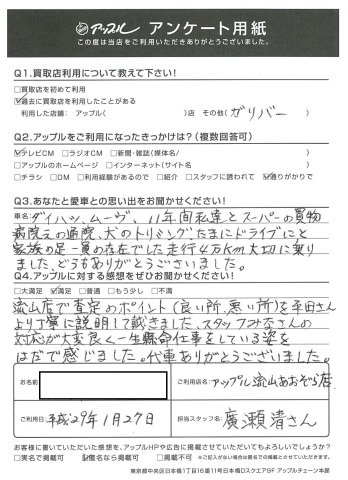 アップル アンケート用紙
この度は当店をご利用いただきありがとうございました。
Q1.買取店利用について教えて下さい!
□買取店を初めて利用
☑過去に買取店を利用したことがある
利用した店舗: アップル( )店 その他(ガリバー )
Q2.アップルをご利用になったきっかけは?(複数回答可)
☑テレビCM □ラジオCM □新聞・雑誌(媒体名/ )
□アップルのホームページ □インターネット(サイト名 )
□チラシ □DM □利用経験があるので □紹介 □スタッフに誘われて ☑通りがかりで
Q3.あなたと愛車との思い出をお聞かせください!
車名:ダイハツ、ムーヴ、11年間私達とスーパーの買物
病院えの通院、犬のトリミング、たまにドライブにと
家族の足一員の存在でした走行4万Km大切に乗り
ました、どうもありがとうございました。
Q4.アップルに対する感想をぜひお聞かせください!
□大満足 ☑満足 □普通 □もう少し □不満
流山店で査定のポイント(良い所、悪い所)を平田さん
より丁寧に説明して戴きました、スタッフみなさんの
対応が大変良く一生懸命仕事をしている姿を
はだで感じました。代車ありがとうございました。
お名前
ご利用店名:アップル流山おおぞら店
ご利用日:平成29年1月27日
担当スタッフ名:廣瀬清さん
お客様に書いていただいた感想を、アップルHPや広告に掲載させていただいてもよろしいでしょうか?
□実名で掲載可 ☑匿名なら掲載可 □掲載不可 ※ご記入がない場合は匿名での掲載とさせていただきます。
東京都中央区日本橋1丁目16番11号日本橋Dスクエア9F アップルチェーン本部